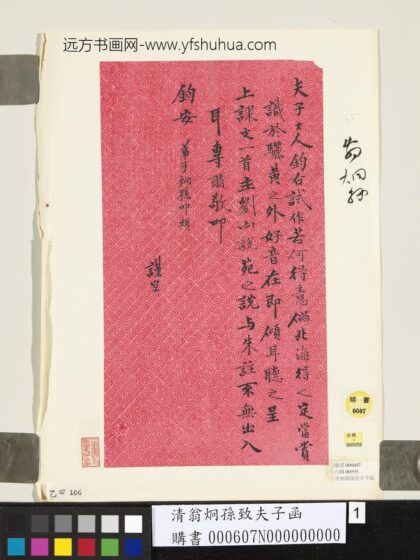 远方书画网-www.yfshuhua.com
夫子大人鈞右試作若何得意倘北海得之定當賞
識於驪黃之外好音在即傾耳聽之呈
上課文一首主劉山說苑之說與朱註不無出入
耳專肅敬叩
鈞安 弟子炯孫叩頓
謹空
翁炯孫
購書
0607
000593
購書 000607
乙 106
清翁炯孫致夫子函
購書 000607N000000000
1